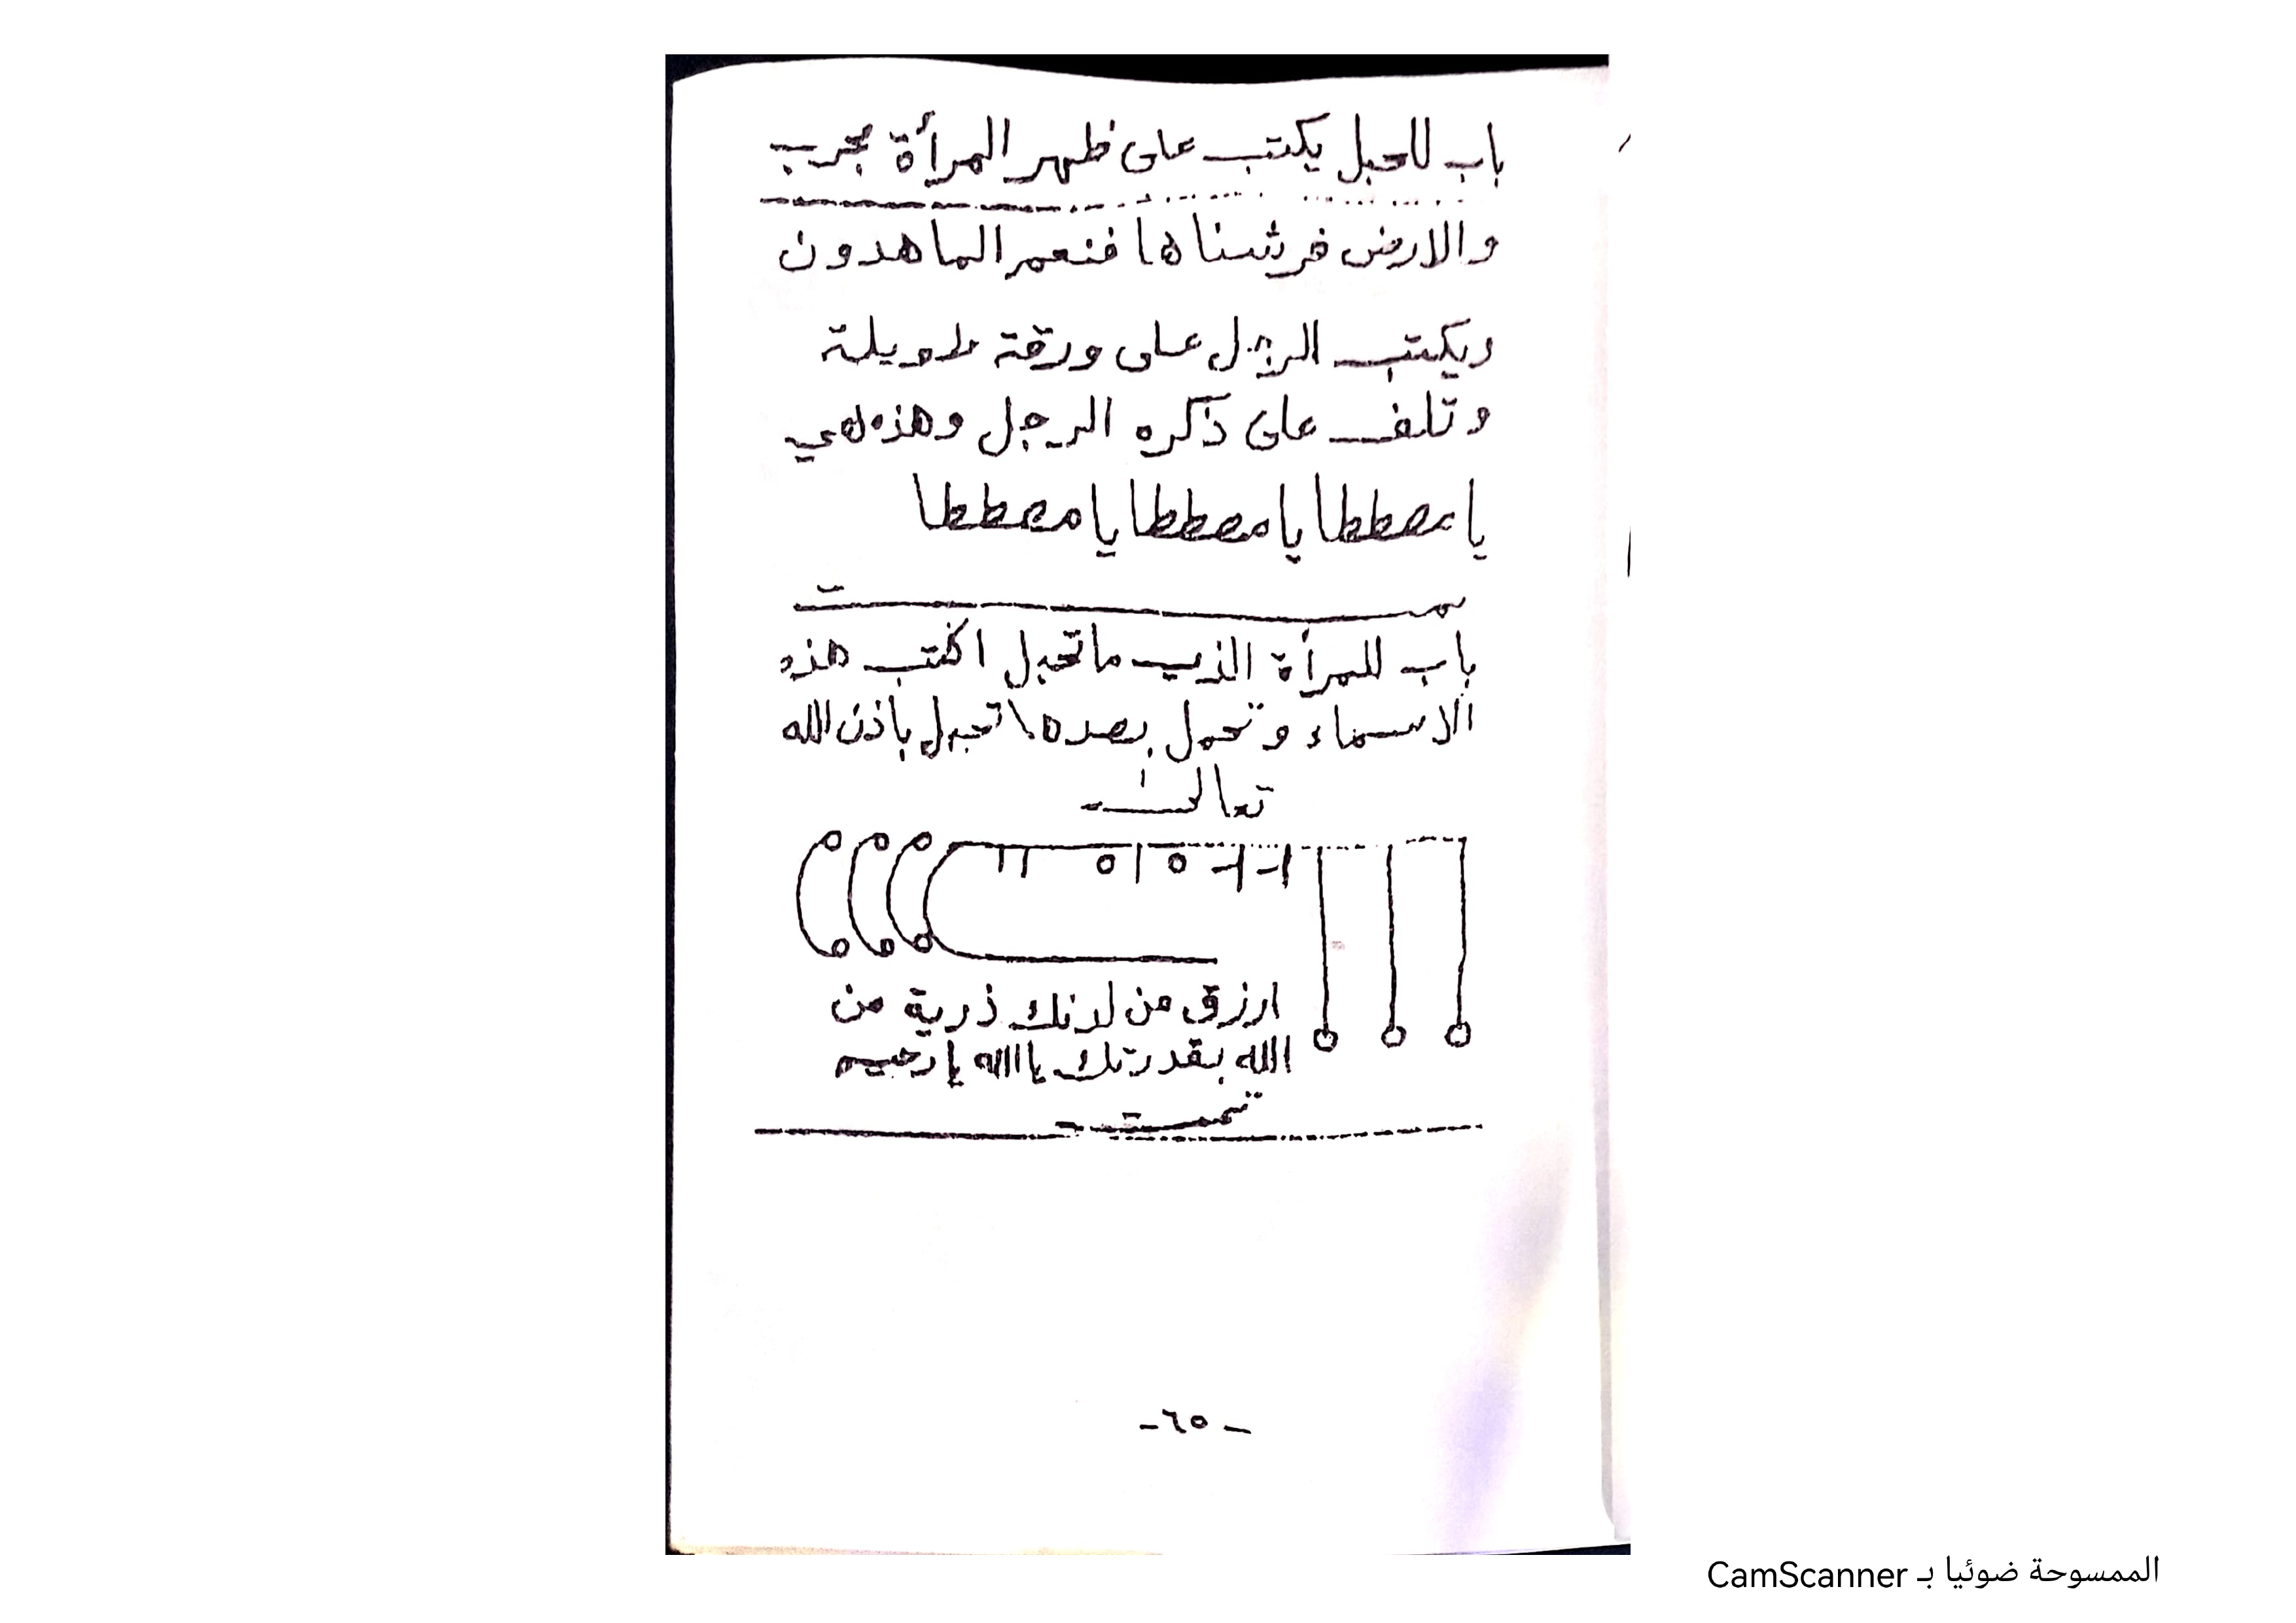 باب للحبل يكتب على ظهر المرأة مجرب
والارض فرشناها فنعم الماهدون
ويكتب الرجل على ورقة طويلة
وتلف على ذكره الرجل وهذه هي
يا مصططا يا مصططا يا مصططا
تمت
باب للمرأة الذي ما تحبل اكتب هذه
الاسماء وتحمل بصدها تحبل باذن الله
تعالى
ارزق من لدنك ذرية من
الله بقدرتك يا الله يا رحيم
تمت
- ٦٥ -
الممسوحة ضوئيا بـ CamScanner